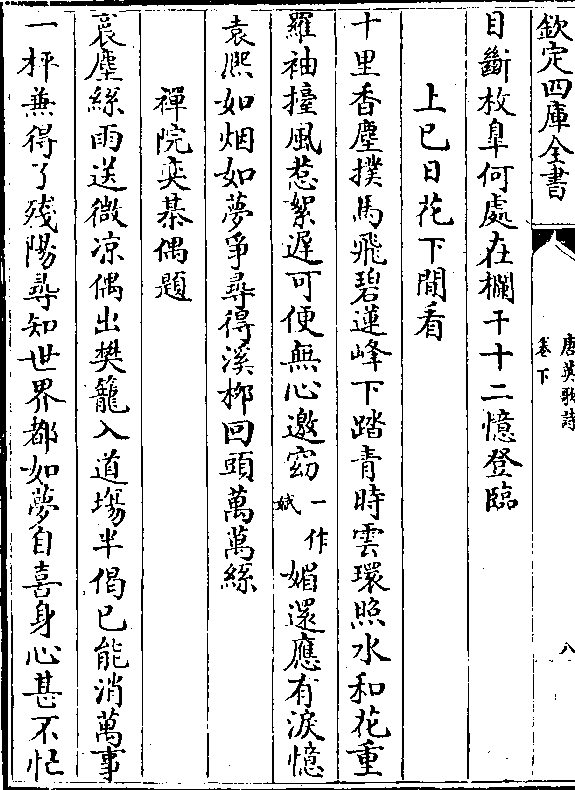 欽定四庫全書
唐英歌詩
卷下
八
目斷枚臯何處在欄干十二憶登臨
上巳日花下閒看
十里香塵撲馬飛碧蓮峰下踏青時雲環照水和花重
羅袖擡風惹絮遲可便無心邀窈一作娬媚還應有淚憶
袁熈如烟如夢爭尋得溪栁回頭萬萬絲
禪院奕棊偶題
裛塵絲雨送微凉偶出樊籠入道塲半偈已能消萬事
一枰兼得了殘陽尋知世界都如夢自喜身心甚不忙